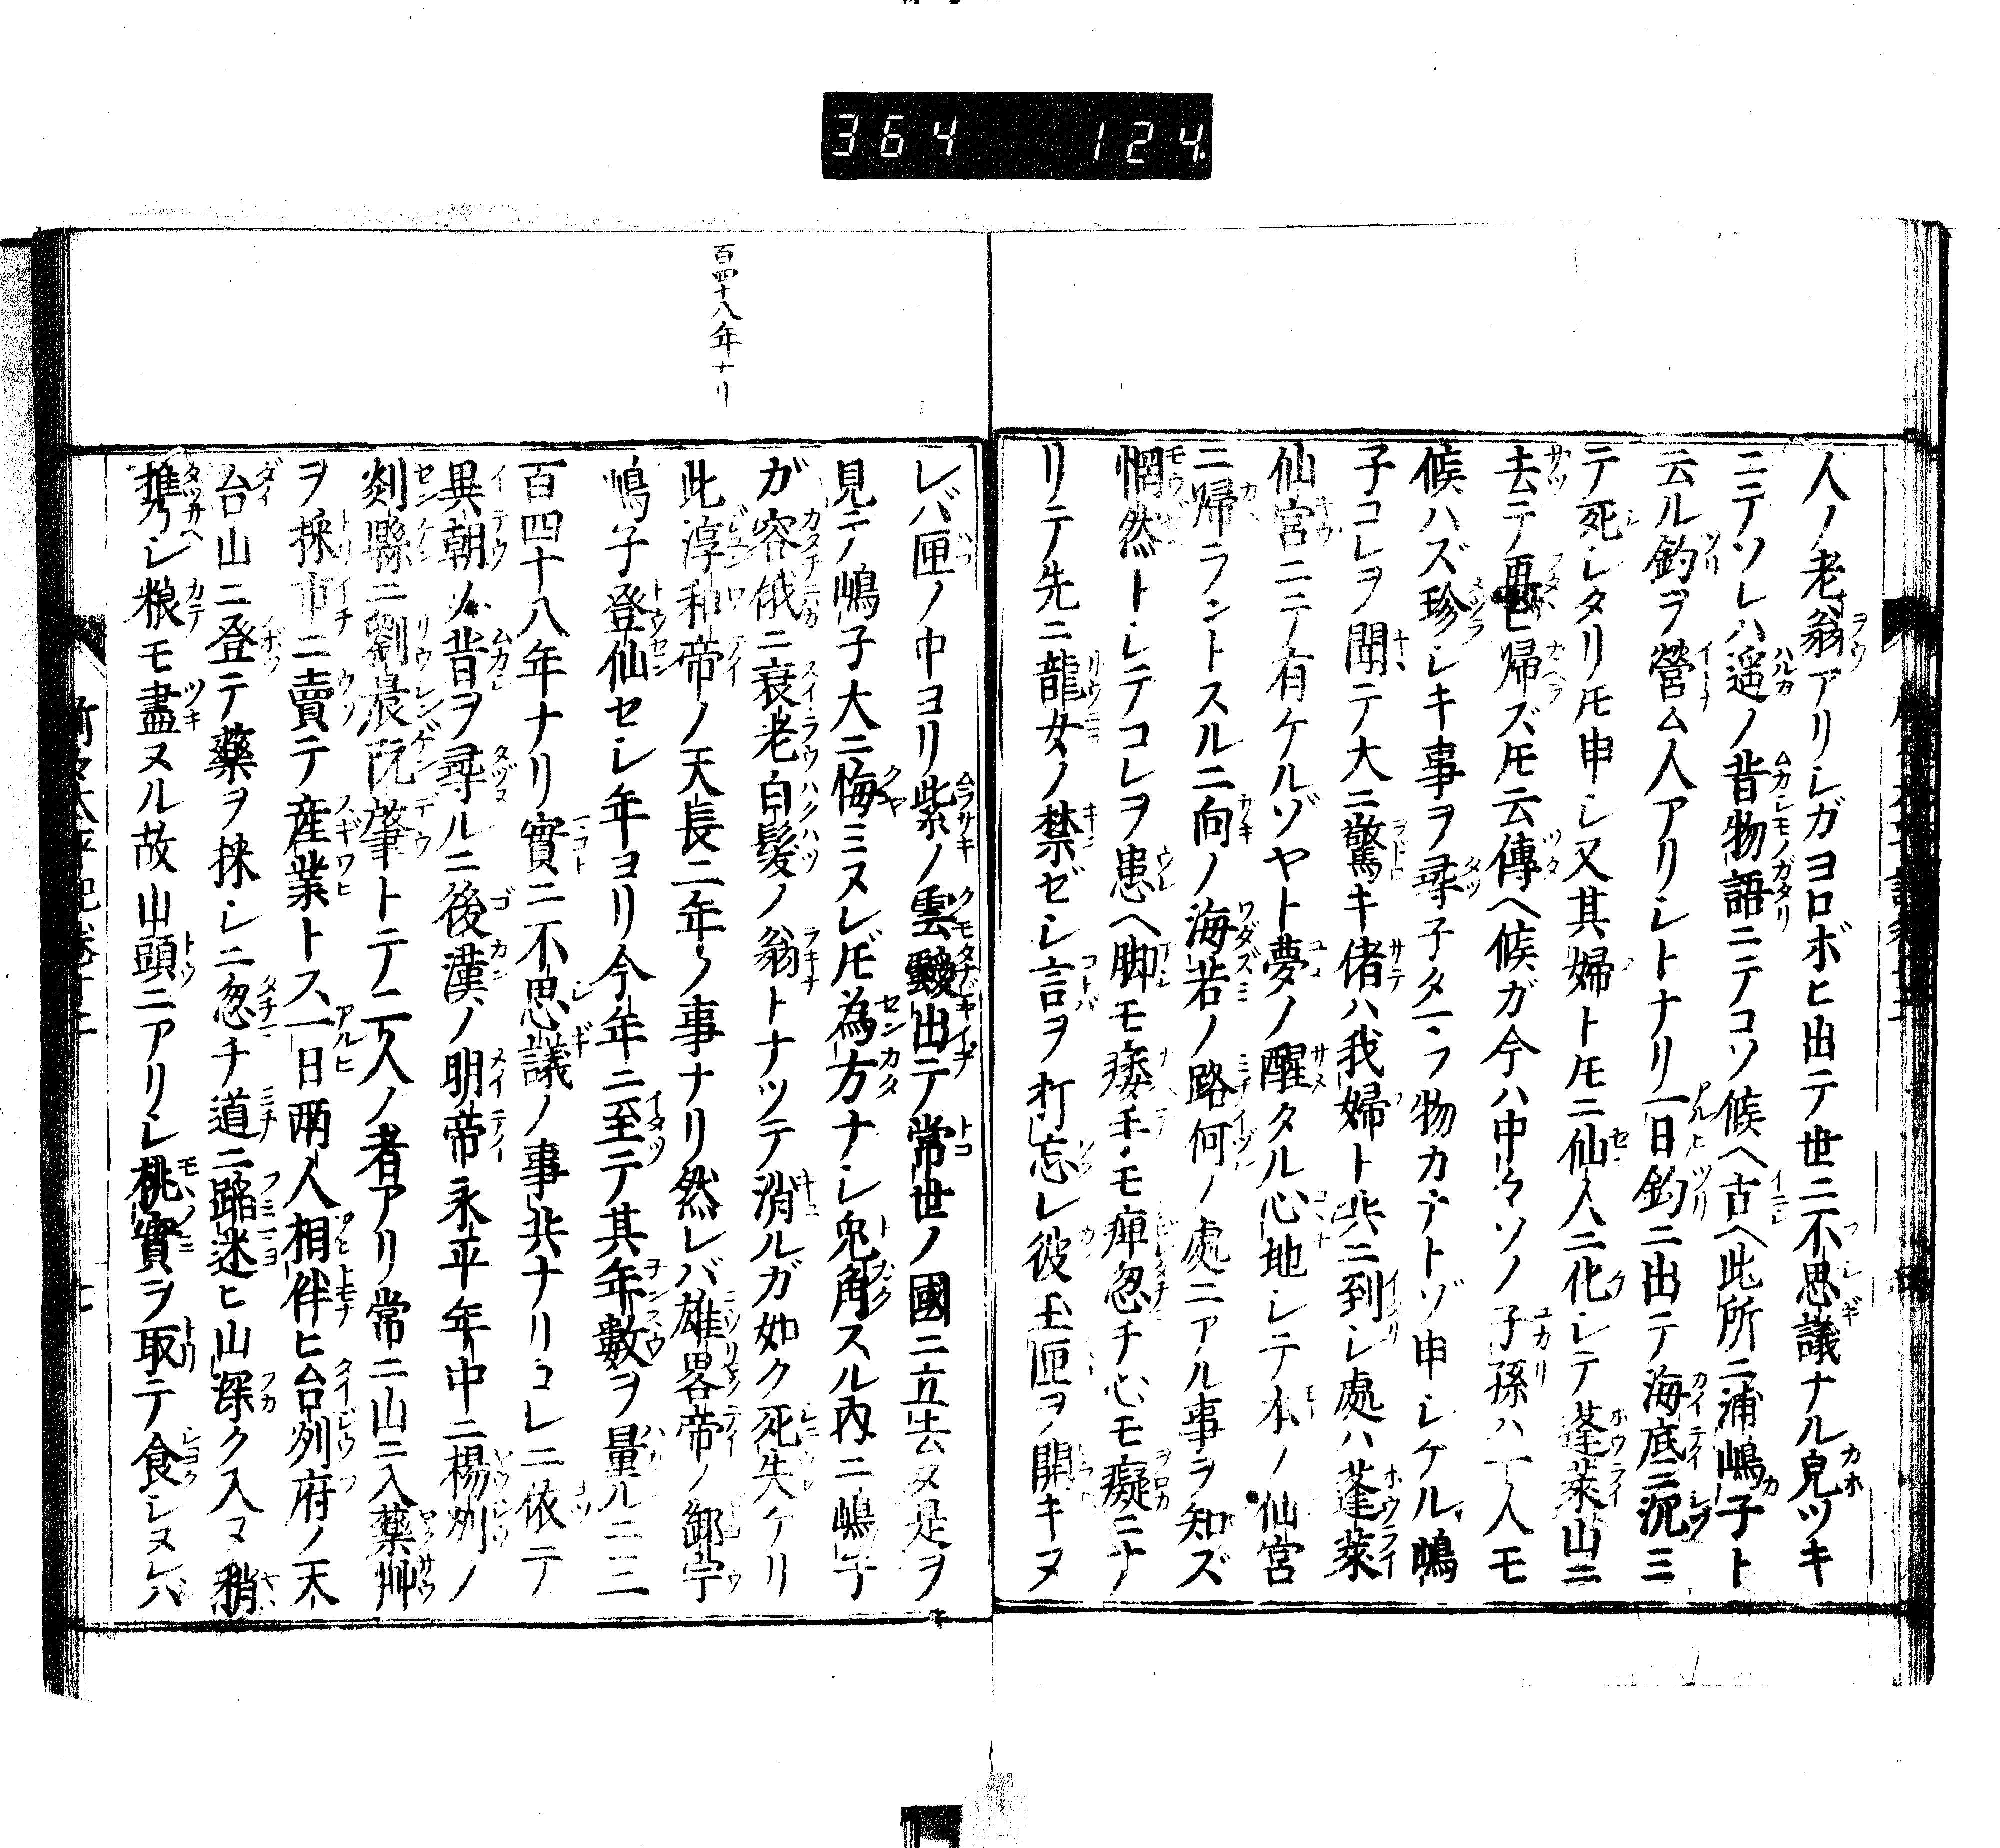 364 124.
人ノ老翁アリシガヨロボヒ出テ世ニ不思議ナル皃ツキ
ニテソレハ遥ノ昔物語ニテコソ候ヘ古ヘ此所ニ浦嶋子ト
云ル釣ヲ營ム人アリシトナリ一日釣ニ出テ海底ニ沉ミ
テ死シタリトモ申シ又其婦トトモニ仙人ニ化シテ蓬莱山ニ
去テ再ヒ帰ズトモ云傳ヘ候ガ今ハ中々ソノ子孫ハ一人モ
候ハズ珍シキ事ヲ尋子タマフ物カナトゾ申シケル嶋
子コレヲ聞テ大ニ驚キ偖ハ我婦ト共ニ到シ處ハ蓬萊
仙宮ニテ有ケルゾヤト夢ノ醒タル心地シテ本ノ仙宮
ニ帰ラントスルニ向ノ海若ノ路何ノ處ニアル事ヲ知ズ
惘然トシテコレヲ患ヘ脚モ痿手モ痺忽チ心モ癡ニナ
リテ先ニ龍女ノ禁ゼシ言ヲ打忘レ彼玉匣ヲ開キヌ
百四十八年ナリ
レバ匣ノ中ヨリ紫ノ雲靉出テ常世ノ國ニ立去ヌ是ヲ
見テ嶋子大ニ悔ミヌレドモ為方ナシ兎角スル内ニ嶋子
ガ容俄ニ衰老白髪ノ翁トナツテ消ルガ如ク死失ケリ
此淳和帝ノ天長二年ノ事ナリ然レバ雄畧帝ノ御宇
嶋子登仙セシ年ヨリ今年ニ至テ其年數ヲ量ルニ三
百四十八年ナリ實ニ不思議ノ事共ナリコレニ依テ
異朝ノ昔ヲ尋ルニ後漢ノ明帝永平年中ニ楊列ノ
剡縣ニ劉晨阮肇トテ二人ノ者アリ常ニ山ニ入藥艸
ヲ採市ニ賣テ産業トス一日兩人相伴ヒ台列府ノ天
台山ニ登テ藥ヲ採シニ忽チ道ニ踏迷ヒ山深ク入ヌ稍
携シ粮モ盡ヌル故山頭ニアリシ桃實ヲ取テ食シヌレバ